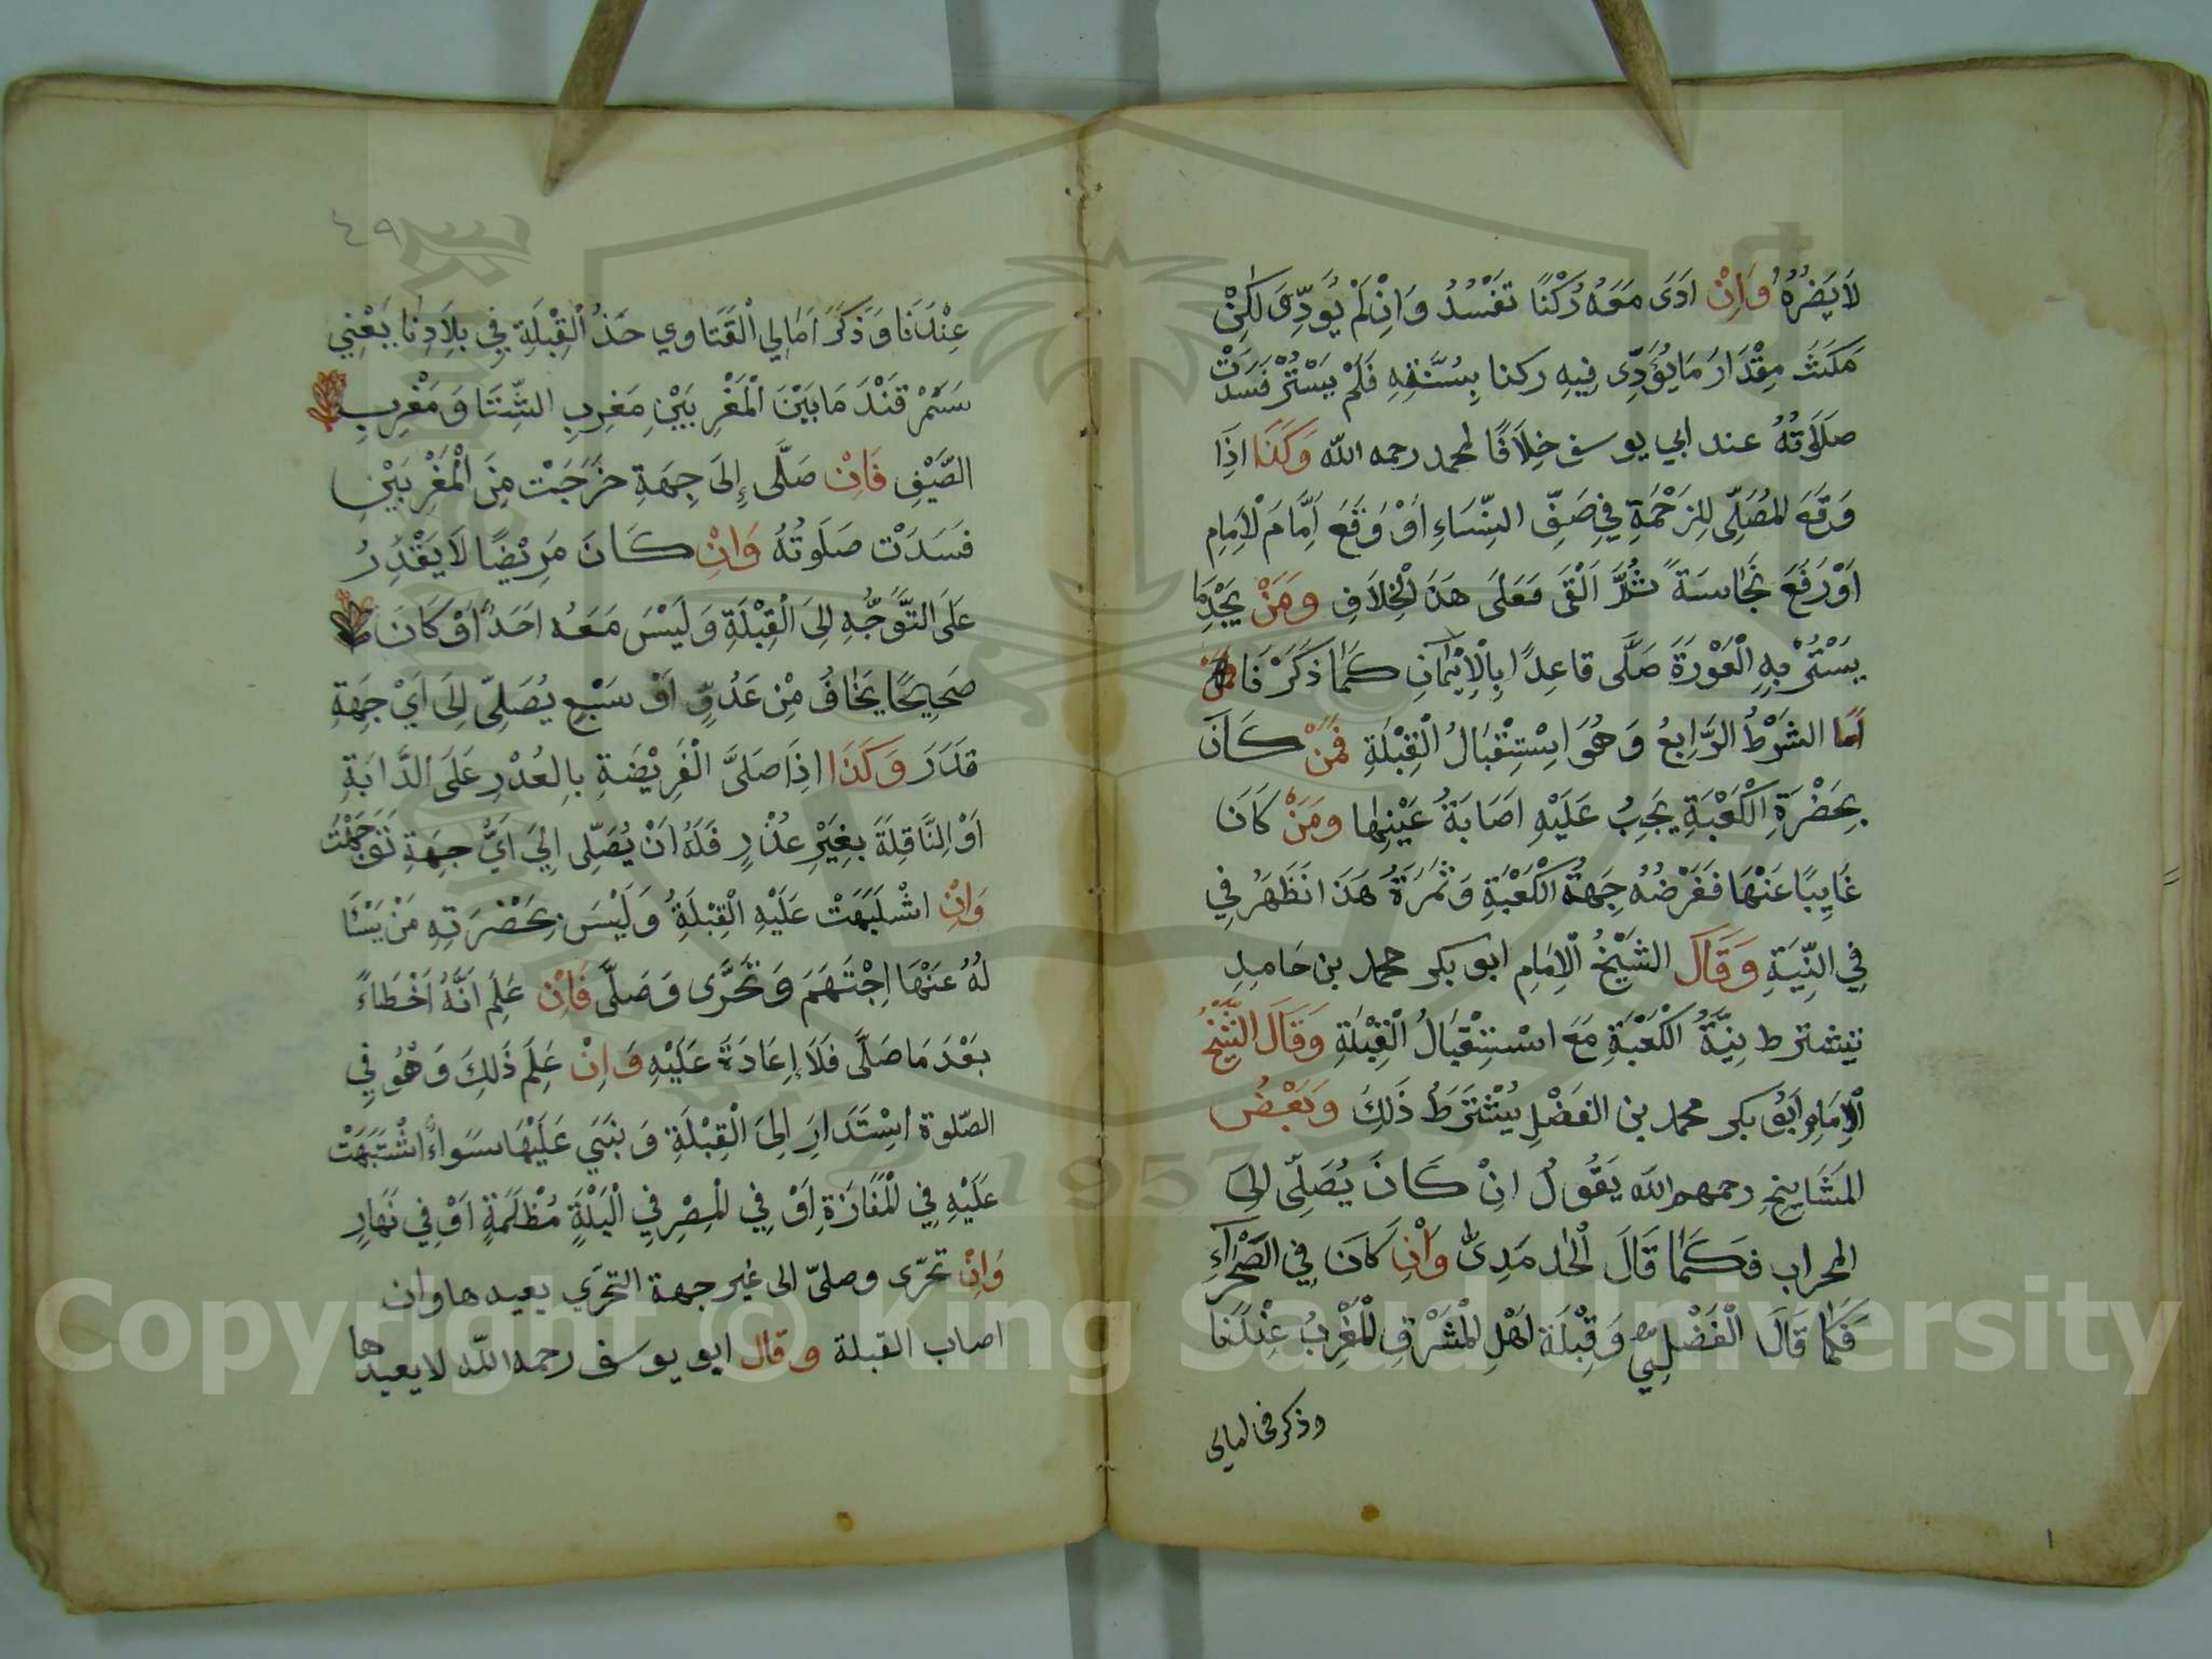 لَا يَضُرُّهُ وَاِنْ اَدَى مَعَهُ رُكْنًا تَفْسُدُ وَاِنْ لَمْ يُؤَدِّىَ لٰكِنْ
مَكَثَ مِقْدَارَ مَا يُؤَدِّى فِيهِ ركنا بِسُنَّتِهِ فَلَمْ يَسْتُرْ فَسَدَتْ
صلَوٰتهُ عند ابي يوسف خِلَافًا لمحمد رحمه الله وَكَذَا اذَا
وَقَعَ المُصَلِّى لِلزَحْمَةِ فِي صَفِّ النِّسَاءِ اَوْ وَقَعَ اَمَّامَ لْاِمَامِ
اَوْ رَفَعَ نَجَاسَةً ثُمَّ اَلْقَى فَعَلَى هَذَ الْخِلَافِ وَمَنْ لم يَجْدِ مَا
يَسْتُرُ بِهِ الْعَوْرَةَ صَلَّى قاعِدًا بِالْاِيْمَآنِ كَمَا ذَكَرْنَا
اَمَا الشَرْطُ الرَّابِعُ وَهُوَ اسِتِقْبَالُ الْقِبْلَةِ فَمَنْ كَانَ
بِحَضْرَةِ الْكَعْبَةِ يَجِبُ عَلَيْهِ اَصَابَةُ عَيْنِهٰا وَمَنْ كَانَ
غَايِبًا عَنْهَا فَفَرْضُهُ جِهَةُ الْكَعْبَةِ وَثَمَرَةُ هَذَا تَظْهَرُ فِي
فِي النِّيَةِ وَقَالَ الشَيْخُ الْاِمَامِ ابو بكر محمد بن حَامِدِ
تيشترط نِيَّةُ الْكَعْبَةِ مَعَ اسْتِقْبَالُ الْقِبْلَةِ وَقَالَ الشَّيْخُ
الْاِمَامِ اَبُو بكر محمد بن الفَضْلِ يُشْتَرَطُ ذَلِكَ وَبَعْضُ
المَشَايِخِ رحمهم الله يَقُولُ انْ كَانَ يُصَلِّى الِىَ
المحراب فَكَمَا قَالَ الْحٰامَدِىُّ وَاْنِ كَانَ فِي الصَّحْرَآءِ
فَكَمَا قَالَ الْفَضْلِيُّ وَقِبْلَةَ اَهْلِ الْمَشْرِقِ الْمَغْرِبُ عِنْدَنَا
وذكر في امالي
٤٩
عِنْدَنَا وَذَكَرَ اَمَالِي الْفَتَاوي حَدُ الْقِبْلَةِ فِي بِلَادِنَا يَعْنِي
سَمَرْقَنْدَ مَا بَيْنَ الْمَغْرِبَيْنِ مَغرِبِ الشِّتَا وَمَغْرِبِ
الصَّيْفِ فَاِنْ صَلَّى إِلىَ جِهَةِ خَرَجَتْ مِنَ الْمَغْرِبَيْنِ
فَسَدَتْ صَلَوتُهُ وَاِنْ كَانَ مَرِيْضًا لَا يَقْدِرُ
عَلَى التَّوَجُّهِ اِلىَ الْقِبْلَةِ وَلَيْسَ مَعَهُ اَحَدٌ اَوْ كَانَ
صَحِيحًا يَخٰافُ مِْن عَدُوٍّ اَوْ سَبْعٍ يُصَلِّى اِلَى اَيْ جِهَةِ
قَدَرَ وَكَذَا اذِا صَلىَّ الْفَرِيْضَةِ بِالعُذْرِ عَلَى الدَّابَةِ
اَوْ النَّافِلَةَ بِغَيْرِ عُذْرٍ فَلَهُ انْ يُصَلِّى اِلىَ اَيُّ جِهَةِ تَوَجَّهَتْ
وَاِنْ اشْتبَهَتْ عَلَيْهِ الْقِبْلَةُ وَلَيْسَ بِحَضْرَتِهِ مَنْ يَسْئَا
لُهُ عَنْهَا اجِْتَهَدَ وَتَحَرَّى وَصَلَّى فَاِنْ عَلِمَ انَّهُ اَخْطَاءً
بَعْدَ مَا صَلَّى فَلَا اِعَادَةَ عَلَيْهِ وَاِنْ عَلِمَ ذَلِكَ وَهُوَ فِي
الصّلوة اسِْتَدَارَ اِلىَ الْقِبْلَةِ وَبَنَي عَلَيْهَا سَوَاءٌ اشْتَبَهَتْ
عَلَيْهِ فِي الْمَفَازَةِ اَوْ فِي الْمِصْرِ فِي الْيَلْةٍَ مُظْلَمَةٍ اَوْ فِي نَهَارٍ
وَاِنْ تحرّى وصلىّ الى غير جهة التحرّي يعيدها وان
اصاب القبلة وقال ابو يوسف رحمه الله لا يعيدها
Copyright © King Saud University
1957